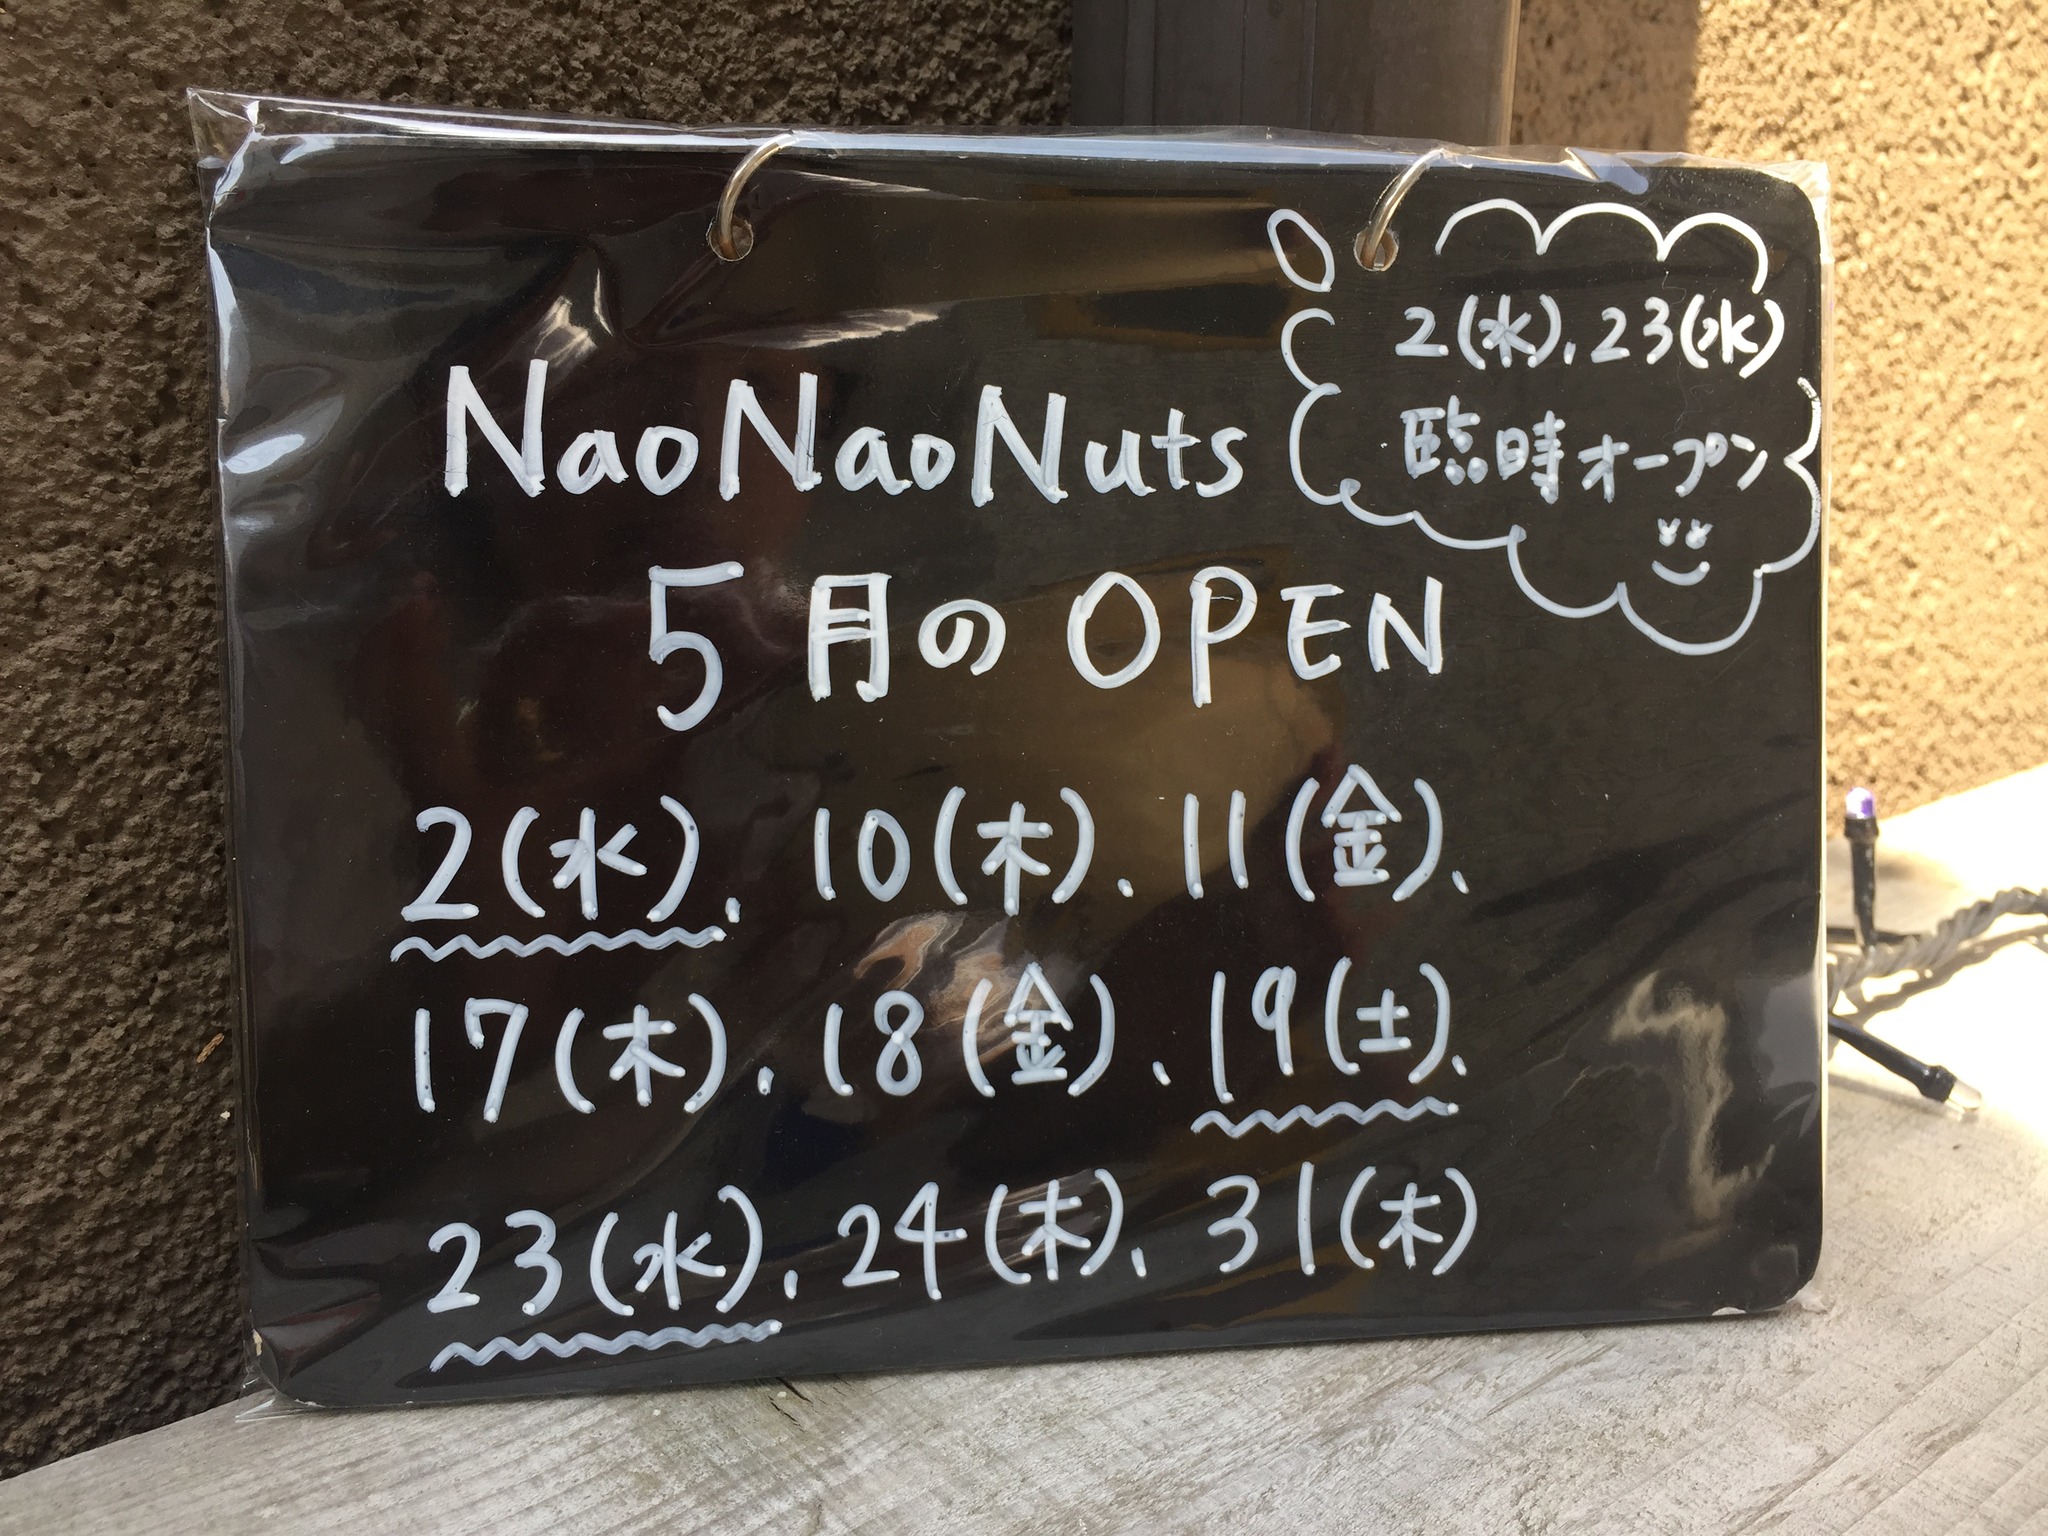 2(水),23(水)
臨時オープン
NaoNaoNuts
5月のOPEN
2(水), 10(木), 11(金),
17(木), 18(金), 19(土),
23(水), 24(木), 31(木)